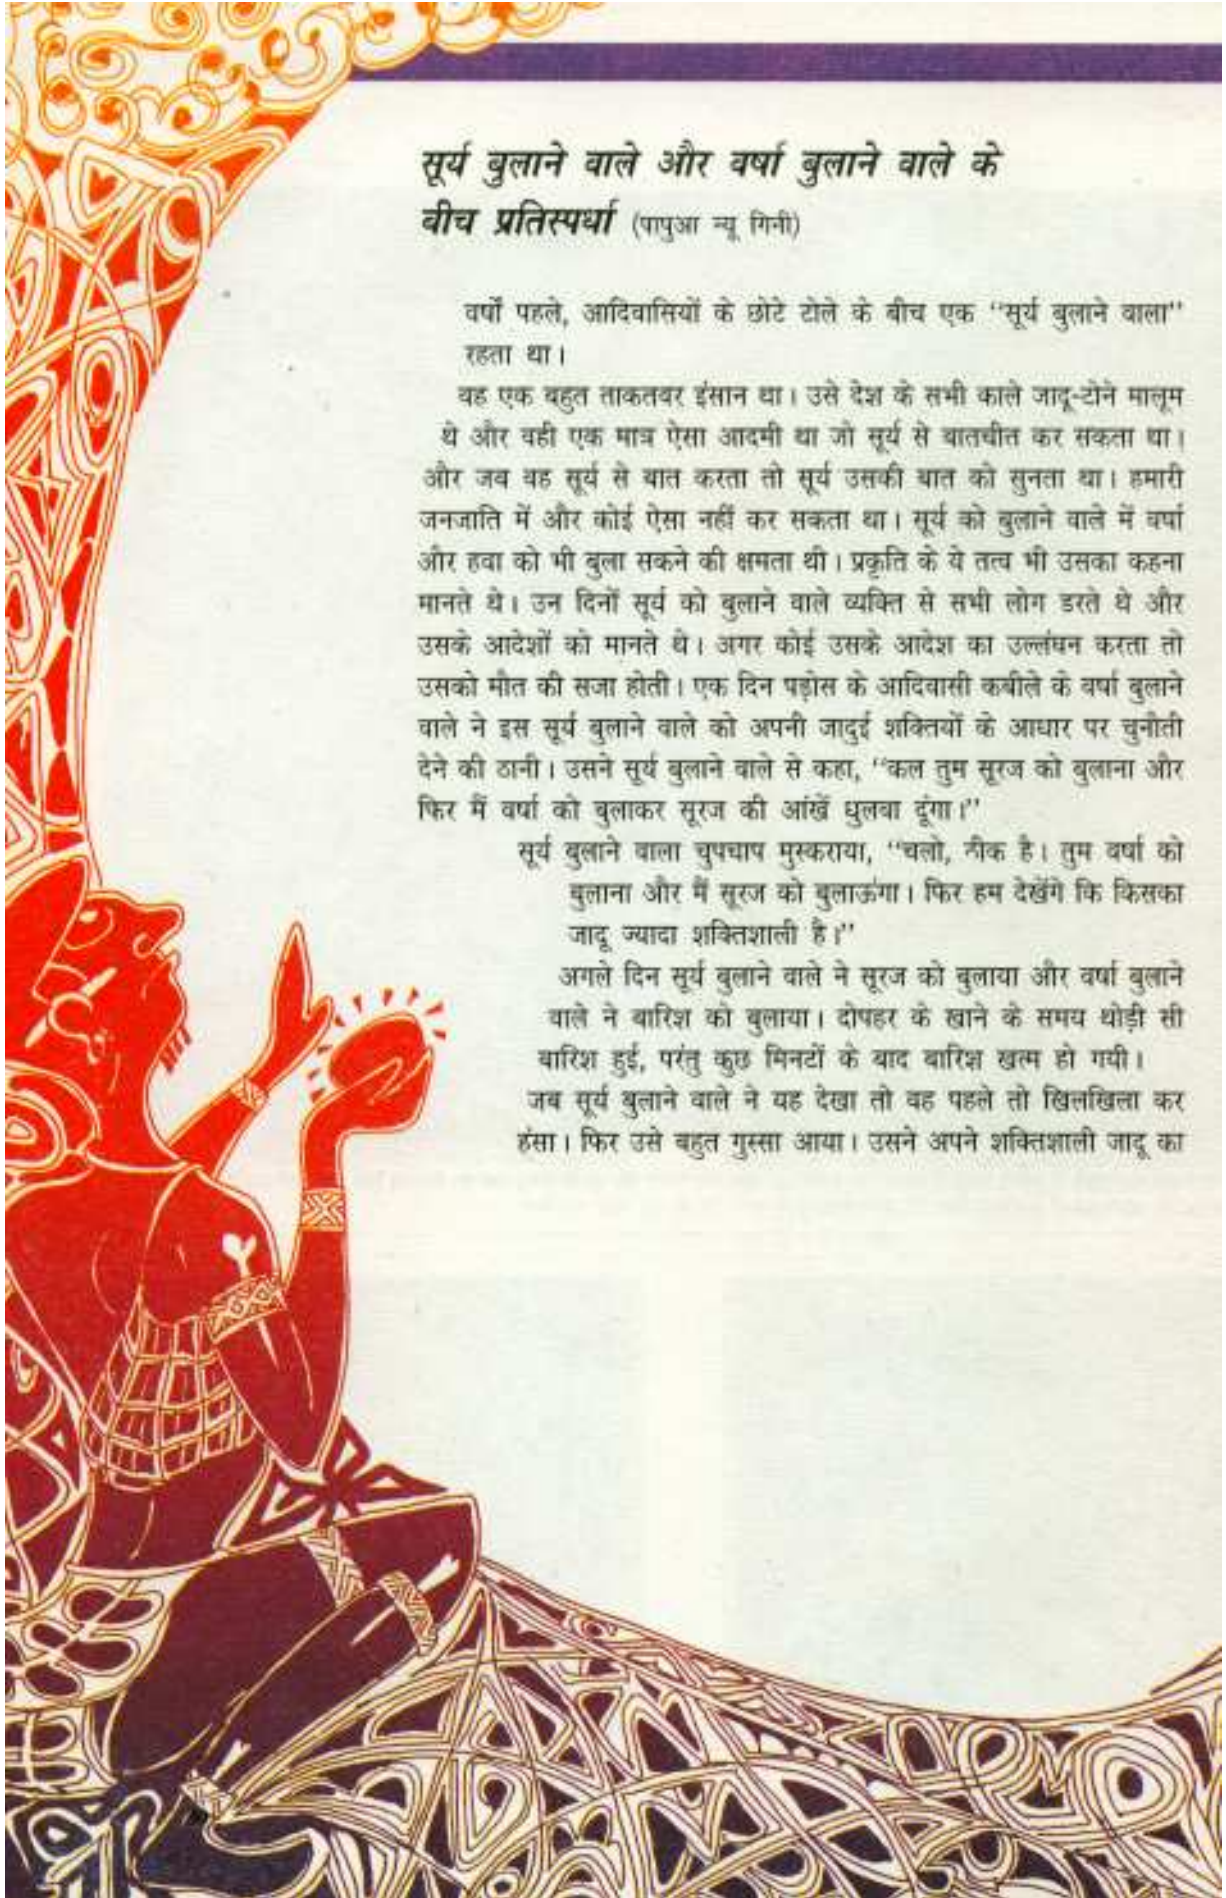 सूर्य बुलाने वाले और वर्षा बुलाने वाले के
बीच प्रतिस्पर्धा (पापुआ न्यू गिनी)
वर्षों पहले, आदिवासियों के छोटे टोले के बीच एक “सूर्य बुलाने वाला”
रहता था।
वह एक बहुत ताकतवर इंसान था। उसे देश के सभी काले जादू-टोने मालूम
थे और वही एक मात्र ऐसा आदमी था जो सूर्य से बातचीत कर सकता था।
और जब वह सूर्य से बात करता तो सूर्य उसकी बात को सुनता था। हमारी
जनजाति में और कोई ऐसा नहीं कर सकता था। सूर्य को बुलाने वाले में वर्षा
और हवा को भी बुला सकने की क्षमता थी। प्रकृति के ये तत्व भी उसका कहना
मानते थे। उन दिनों सूर्य को बुलाने वाले व्यक्ति से सभी लोग डरते थे और
उसके आदेशों को मानते थे। अगर कोई उसके आदेश का उल्लंघन करता तो
उसको मौत की सजा होती। एक दिन पड़ोस के आदिवासी कबीले के वर्षा बुलाने
वाले ने इस सूर्य बुलाने वाले को अपनी जादुई शक्तियों के आधार पर चुनौती
देने की ठानी। उसने सूर्य बुलाने वाले से कहा, “कल तुम सूरज को बुलाना और
फिर मैं वर्षा को बुलाकर सूरज की आंखें धुलवा दूंगा।”
सूर्य बुलाने वाला चुपचाप मुस्कराया, “चलो, ठीक है। तुम वर्षा को
बुलाना और मैं सूरज को बुलाऊंगा। फिर हम देखेंगे कि किसका
जादू ज्यादा शक्तिशाली है।”
अगले दिन सूर्य बुलाने वाले ने सूरज को बुलाया और वर्षा बुलाने
वाले ने बारिश को बुलाया। दोपहर के खाने के समय थोड़ी सी
बारिश हुई, परंतु कुछ मिनटों के बाद बारिश खत्म हो गयी।
जब सूर्य बुलाने वाले ने यह देखा तो वह पहले तो खिलखिला कर
हंसा। फिर उसे बहुत गुस्सा आया। उसने अपने शक्तिशाली जादू का